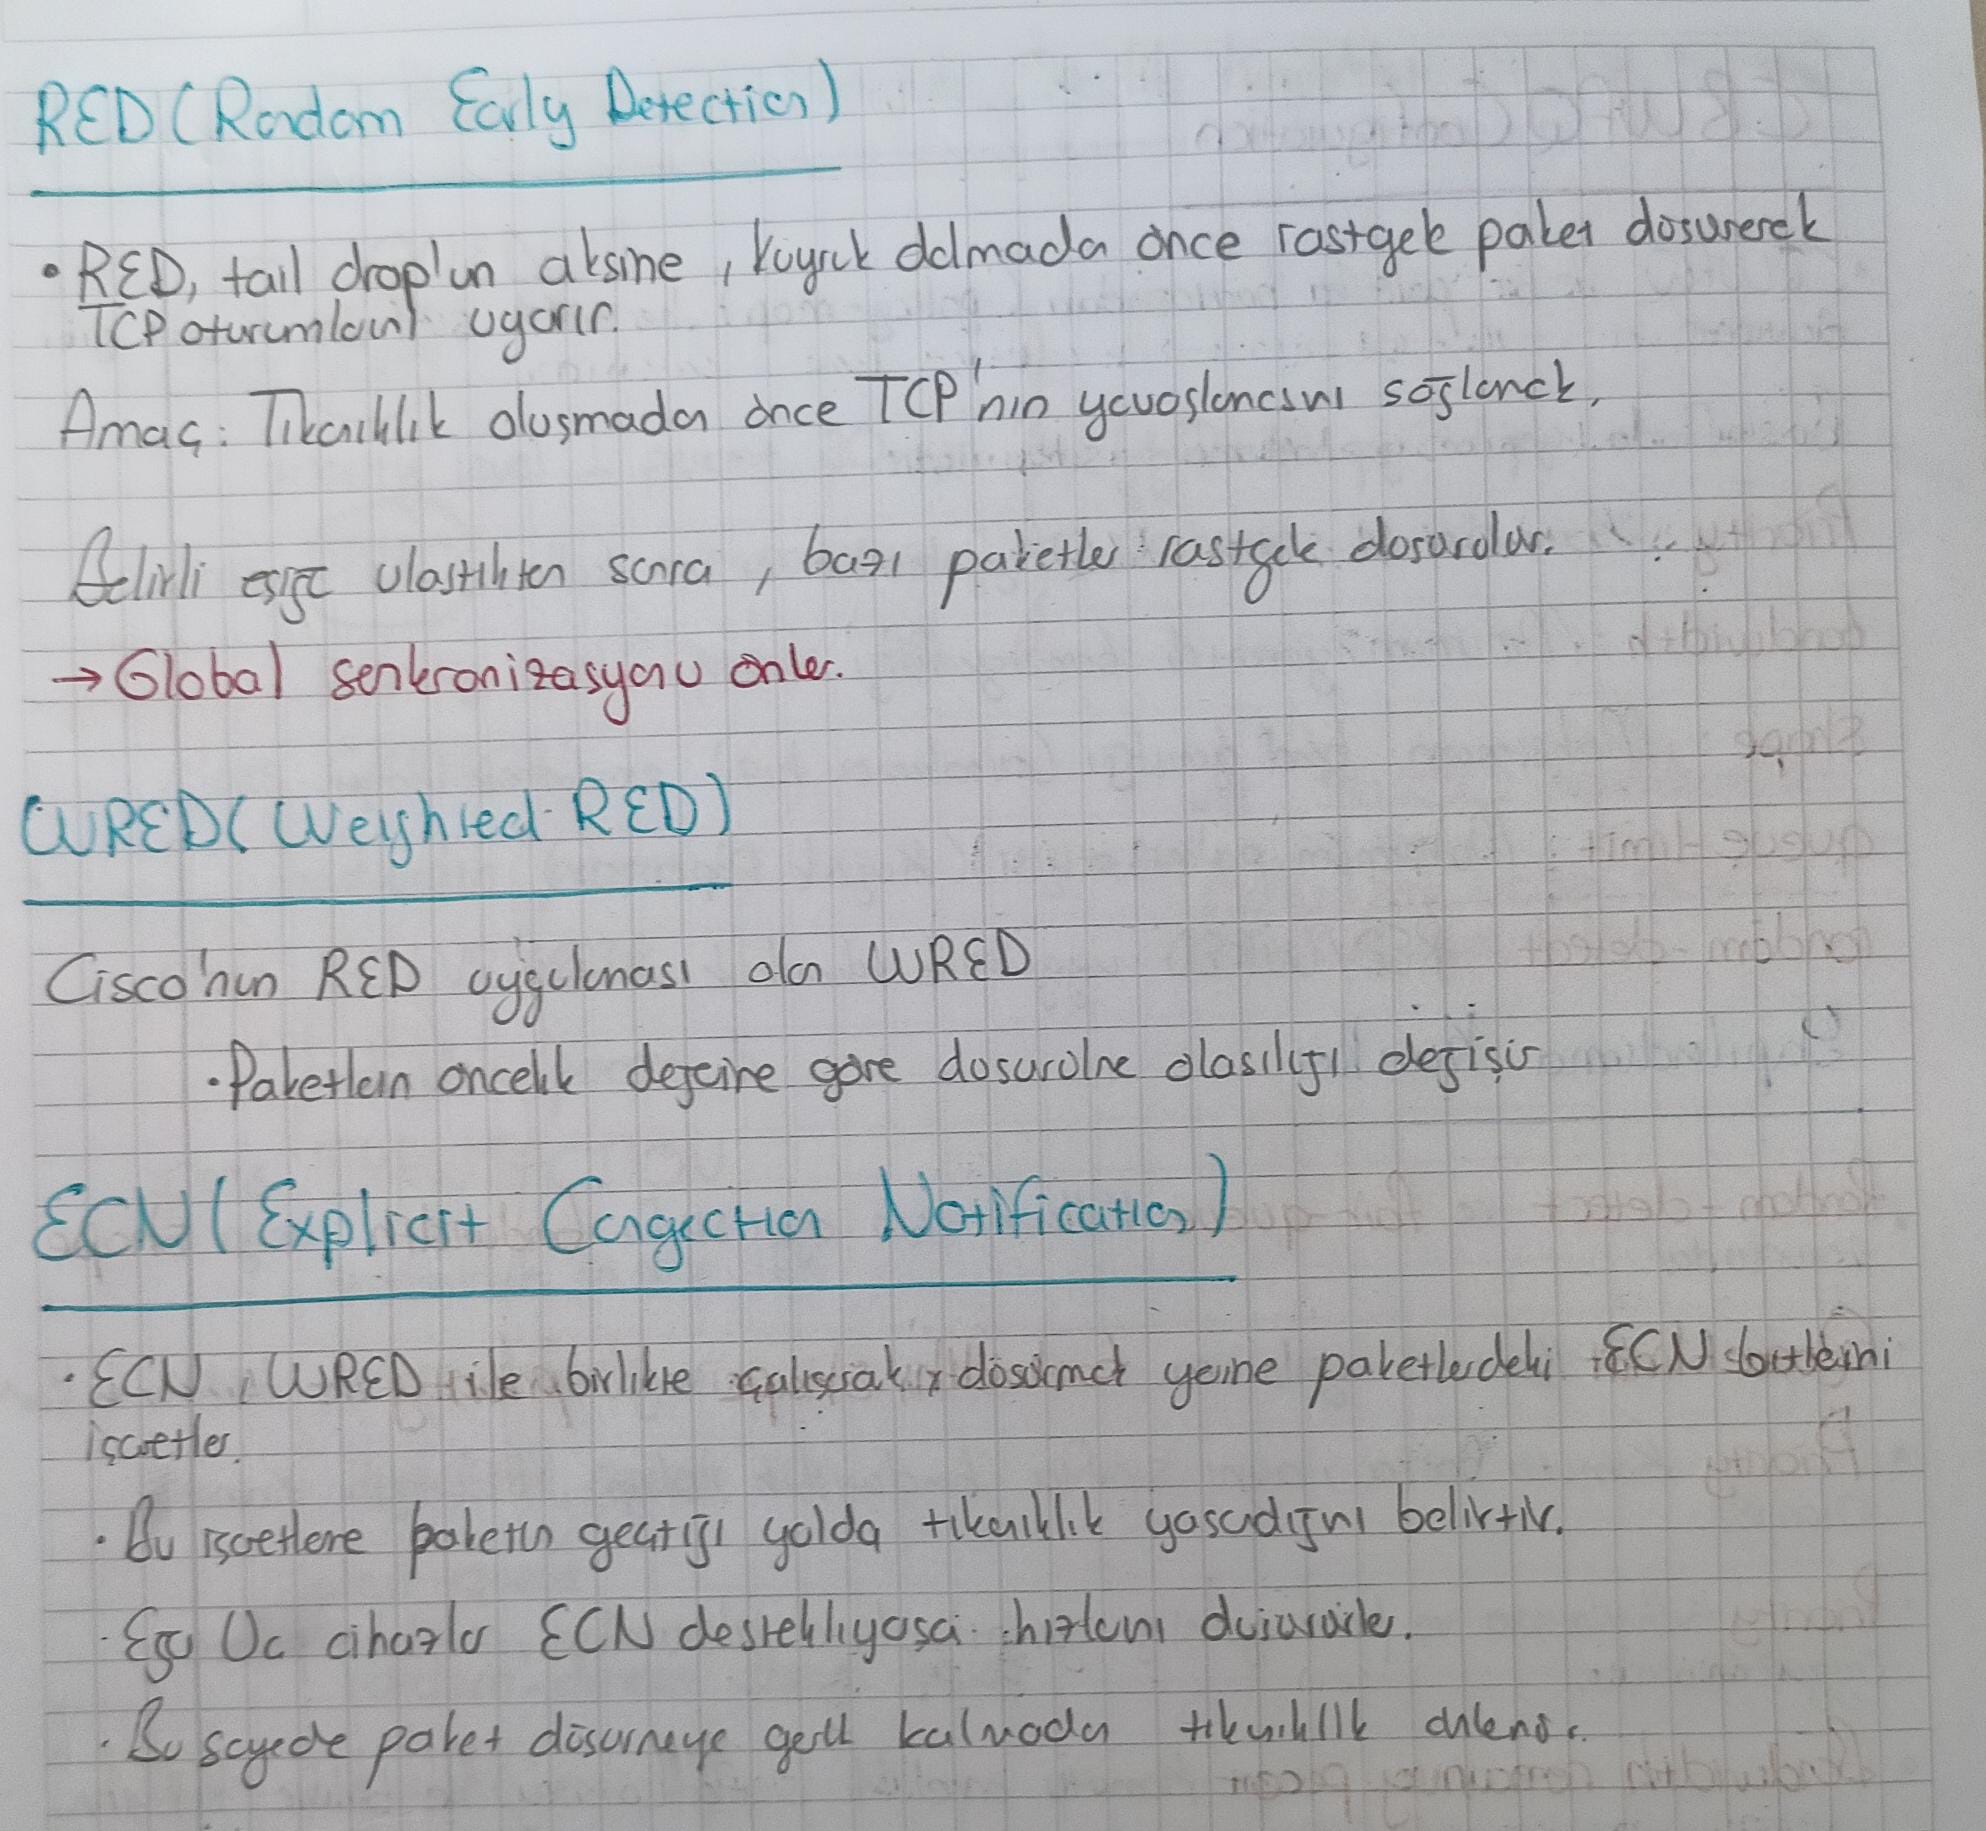 RED (Random Early Detection)
• RED, tail drop'un aksine, kuyruk dolmadan önce rastgele paket düşürerek
TCP oturumlarını uyarır.
Amaç: Tıkanıklık oluşmadan önce TCP'nin yavaşlamasını sağlamak.
Belirli eşiğe ulaştıkten sonra, bazı paketler rastgele düşürülür.
→ Global senkronizasyonu önler.
WRED (Weighted RED)
Cisco'nun RED uygulaması olan WRED
• Paketlerin öncelik değerine göre düşürülme olasılığı değişir
ECN (Explicit Congection Notification)
• ECN, WRED ile birlikte çalışarak, düşürmek yerine paketlerdeki ECN bitlerini
işaretler.
• Bu işaretleme paketin geçtiği yolda tıkanıklık yaşadığını belirtir.
• Eğer Uc cihazlar ECN destekliyorsa hızlarını düşürürler.
• Bu sayede paket düşürmeye gerek kalmadan tıkanıklık önlenir.